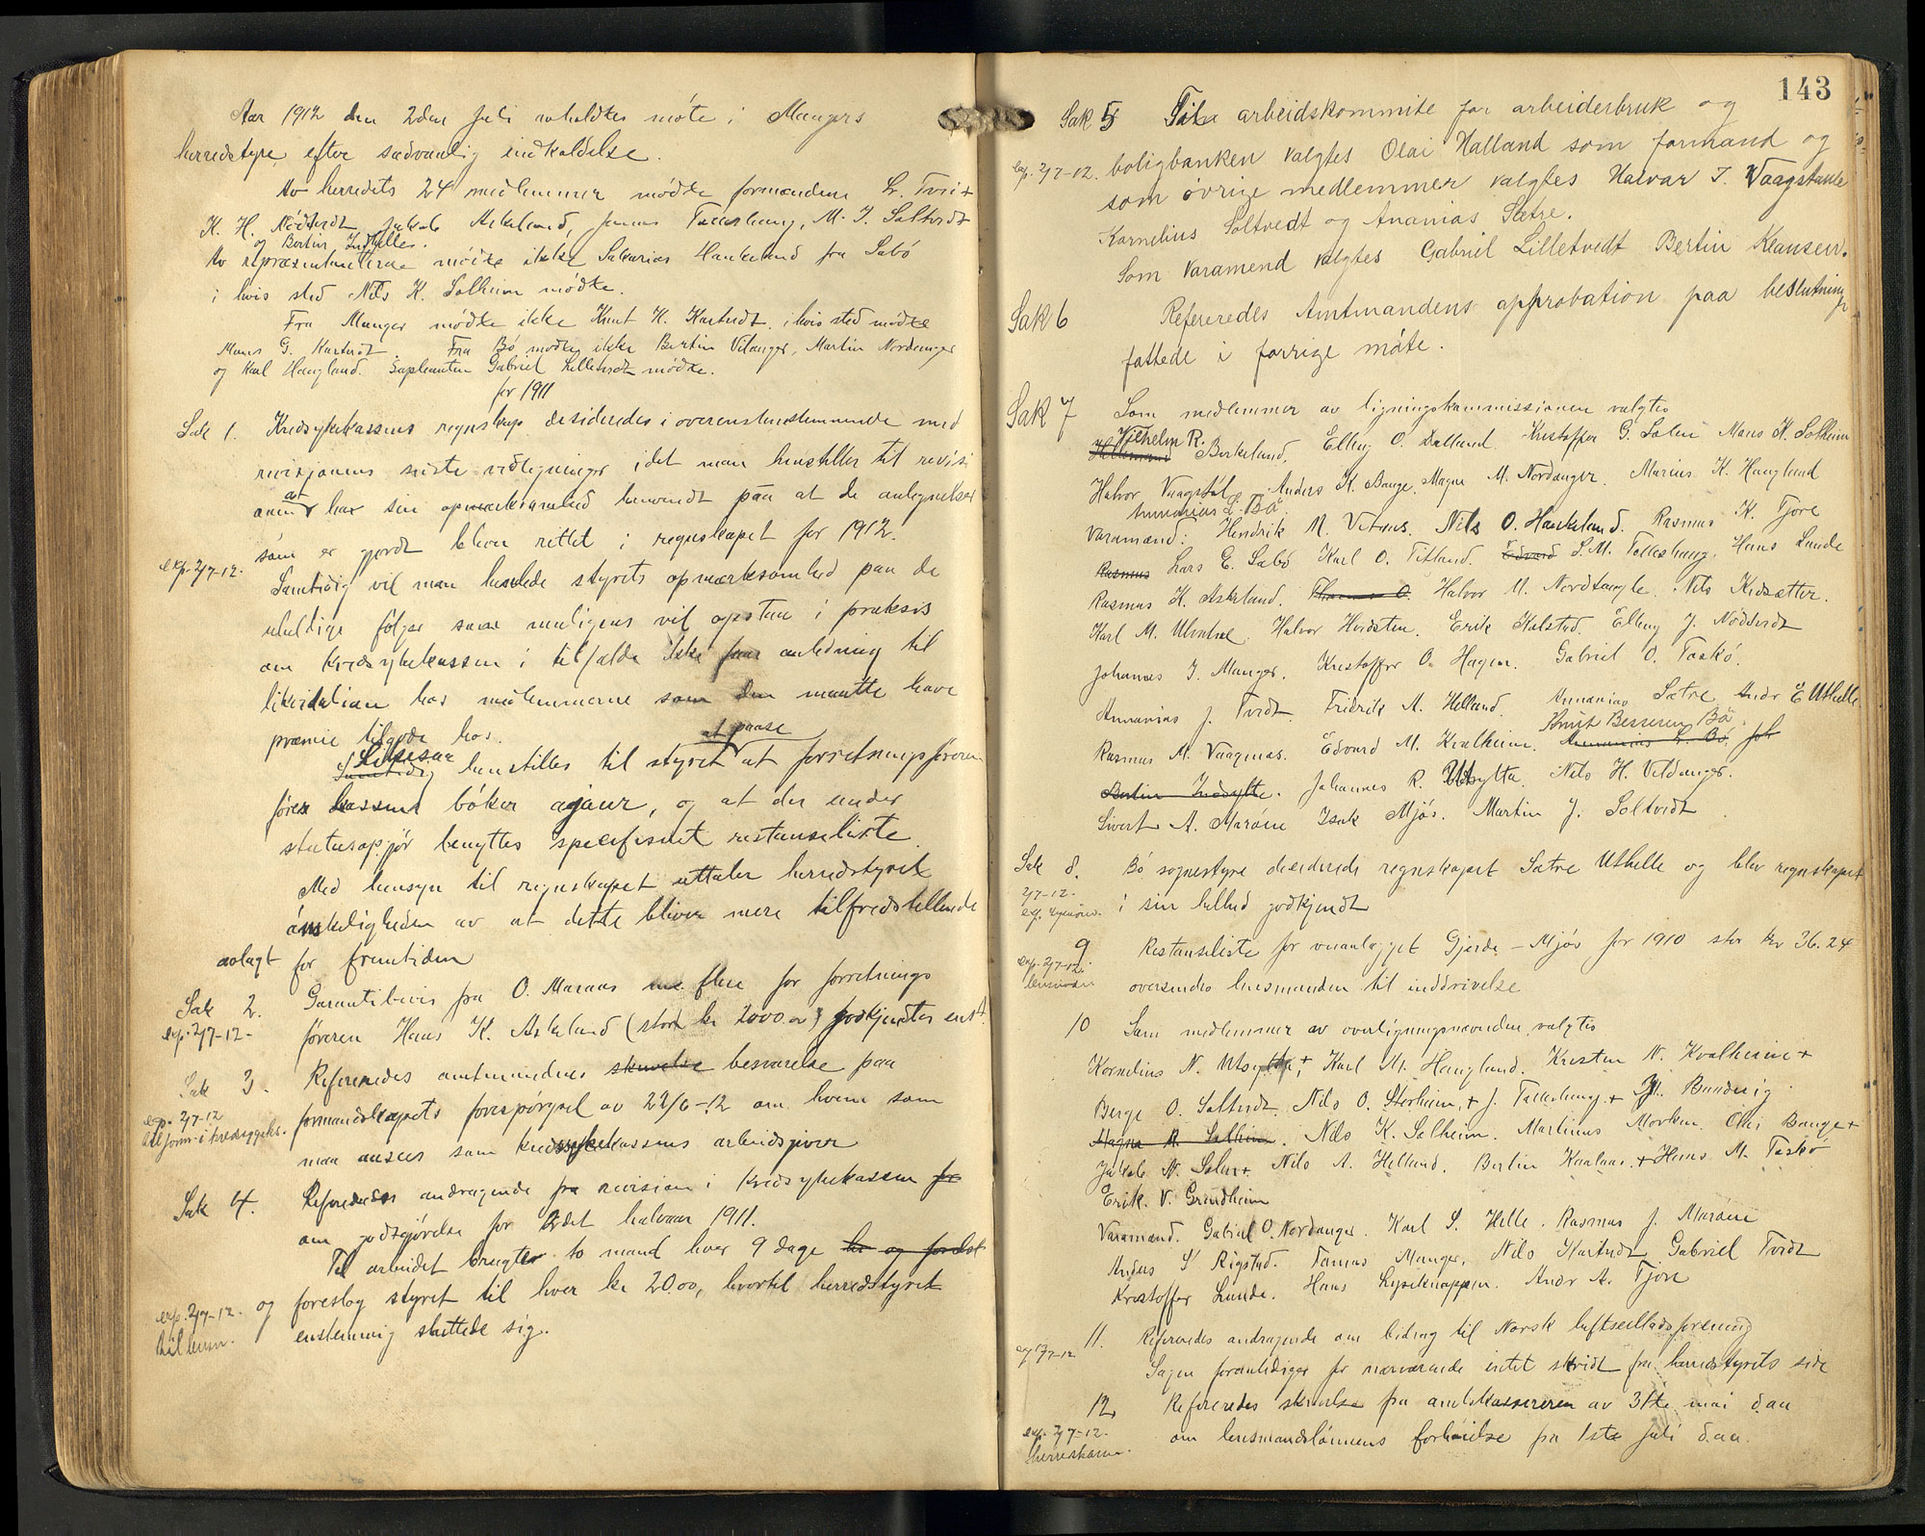 Aar 1912 den 2den juli avholdtes møte i Mangers
herredstyre efter sædvanlig indkaldelse.
Av herredets 24 medlemmer mødte formanden Hr. Tveit
K. H. Nødtvedt, Jakob Askeland, Jonas Tolleshaug, M. J. Soltvedt
og Bertin Indsylte.
Av repræsentanterne mødte ikke Sakarias Haukeland fra Sæbø
i hvis sted Nils K. Solheim mødte.
Fra Manger mødte ikke Knut H. Kartvedt, i hvis sted mødte
Mons G. Kartvedt. Fra Bø mødte ikke Bertin Vetanger, Martin Nordanger
og Karl Haugland. Suplanten Gabriel Lilletvedt mødte.
for 1911
Sak 1. Kredsykekassens regnskap desideredes i overensstemmende med
revisjonens sidste vedtegninger idet man henstiller til revisi
onen at har sin opmerksomhed henvendt paa at de anlegnelser
som er gjordt bliver rettet i regnskapet for 1912.
exp. 2/7-12.
Samtidig vil man henlede styrets opmærksomhed paa de
uheldige følger som muligens vil opstaa i praksis
om kredssykekassen i tilfælde ikke faar anledning til
likvidation hos medlemmerne som den maatte have
præmie tilgode hos.
at paase
Likesaa henstilles til styret at forretningsføreren
fører kassens bøker ajour, og at der under
statusopgjør benyttes specifisert restanseliste.
Med hensyn til regnskapet uttaler herredstyret
ønskeligheden av at dette bliver mere tilfredstillende
avlagt for fremtiden
Sak 2. Garantibevis fra O. Maraas m. flere for forretnings
exp. 2/7-12- føreren Hans K. Askeland (stort kr 2000.oo) godkjendtes enst.
Sak 3. Refereredes amtmandens skrivelse besvarelse paa
exp. 2/7-12 formandskapets forespørgsel av 22/6-12 om hvem som
til form. i kredssygeks. maa ansees som kredssykekassens arbeidsgiver
Sak 4. Refereredes andragende fra revision i kredssykekassen for
om godtgjørelse for 2det halvaar 1911.
Til arbeidet brugtes to mand hver 9 dage har og foreslot
exp. 2/7-12. og foreslog styret til hver kr 20.oo, hvortil herredstyret
enstemmig sluttede sig.
143
Sak 5 Til arbeidskommite for arbeiderbruk og
exp. 2/7-12. boligbanken valgtes Olai Halland som formand og
som øvrige medlemmer valgtes Halvar J. Vaagstøule
Kornelius Soltvedt og Ananias Sætre.
Som varamend valgtes Gabriel Lilletvedt Bertin Klausen.
Sak 6 Refereredes Amtmandens approbation paa beslutninger
fattede i forrige møte.
Sak 7 Som medlemmer av ligningskommissionen valgtes
Vilhelm R.
Birkeland, Elling O. Dalland. Kristoffer G. Solem Mons K. Solheim
Halvor Vaagstøl. Anders K. Bauge. Magne M. Nordanger. Marius K. Haugland
Annanias L. Bø.
Varamænd: Hendrik M. Vetaas. Nils O. Haukeland. Rasmus K. Fjore
Rasmus Lars E. Sæbø Karl O. Titland. Edvard S.M. Tolleshaug. Hans Lunde
Rasmus K. Askeland. Thomas O. Halvor M. Nordtangle. Nils Kidsætter.
Karl M. Ulvatne. Halvor Hordsten. Erik Kalstad. Elling J. Nødtvedt
Johannes J. Manger. Kristoffer O. Hagen. Gabriel O. Toskø.
Annanias J. Tveit. Fridrik A. Helland. Annanias Sætre Andr E Uthelle
Knut Bessesen Bø.
Rasmus M. Vaagenes. Edvard M. Kvalheim. Annanias L. Bø. Joh
Bertin Indsylte. Johannes R. Utsylta. Nils H. Vetanger.
Sivert A. Marøen Isak Mjøs. Martin J. Soltvedt
Sak 8. Bø sognestyre desiderede regnskapet Sætre Uthelle og blev regnskapet
2/7-12.
i sin helhed godkjendt
9 Restanseliste for veianlægget Gjerde - Mjøs for 1910 stor kr 36.24
exp. 2/7-12.
lensmand oversendes lensmanden til inddrivelse
10 Som medlemmer av overligningsnævnden valgtes
Kornelius N. Utsylta, + Karl M. Haugland. Kristen N. Kvalheim +
Berge O. Soltvedt. Nils O. Storheim, + J. Tolleshaug + M. Bundevig
Magne R. Solheim. Nils K. Solheim. Martinus Morken. Olai Bauge +
Jakob N. Solem + Nils A. Helland. Bertin Kaalaas. + Hans M. Toskø
Erik V. Grindheim
Varamænd. Gabriel O. Nordanger. Karl S. Helle. Rasmus J. Marøen
Anders S Rigstad. Tomas Manger, Nils Kartvedt, Gabriel Tveit
Kristoffer Lunde. Hans Lyseknappen. Andr A. Fjore
11. Refereredes andragende om bidrag til Norsk luftseiladsforening
Sagen foranlediger for nærværende intet skridt fra herredstyrets side
12. Refereredes skrivelse fra amtskassereren av 31te mai d.aa
exp. 2/7-12. om lensmandslønnens forhøielse fra 1ste juli d.aa.
herredskasse.